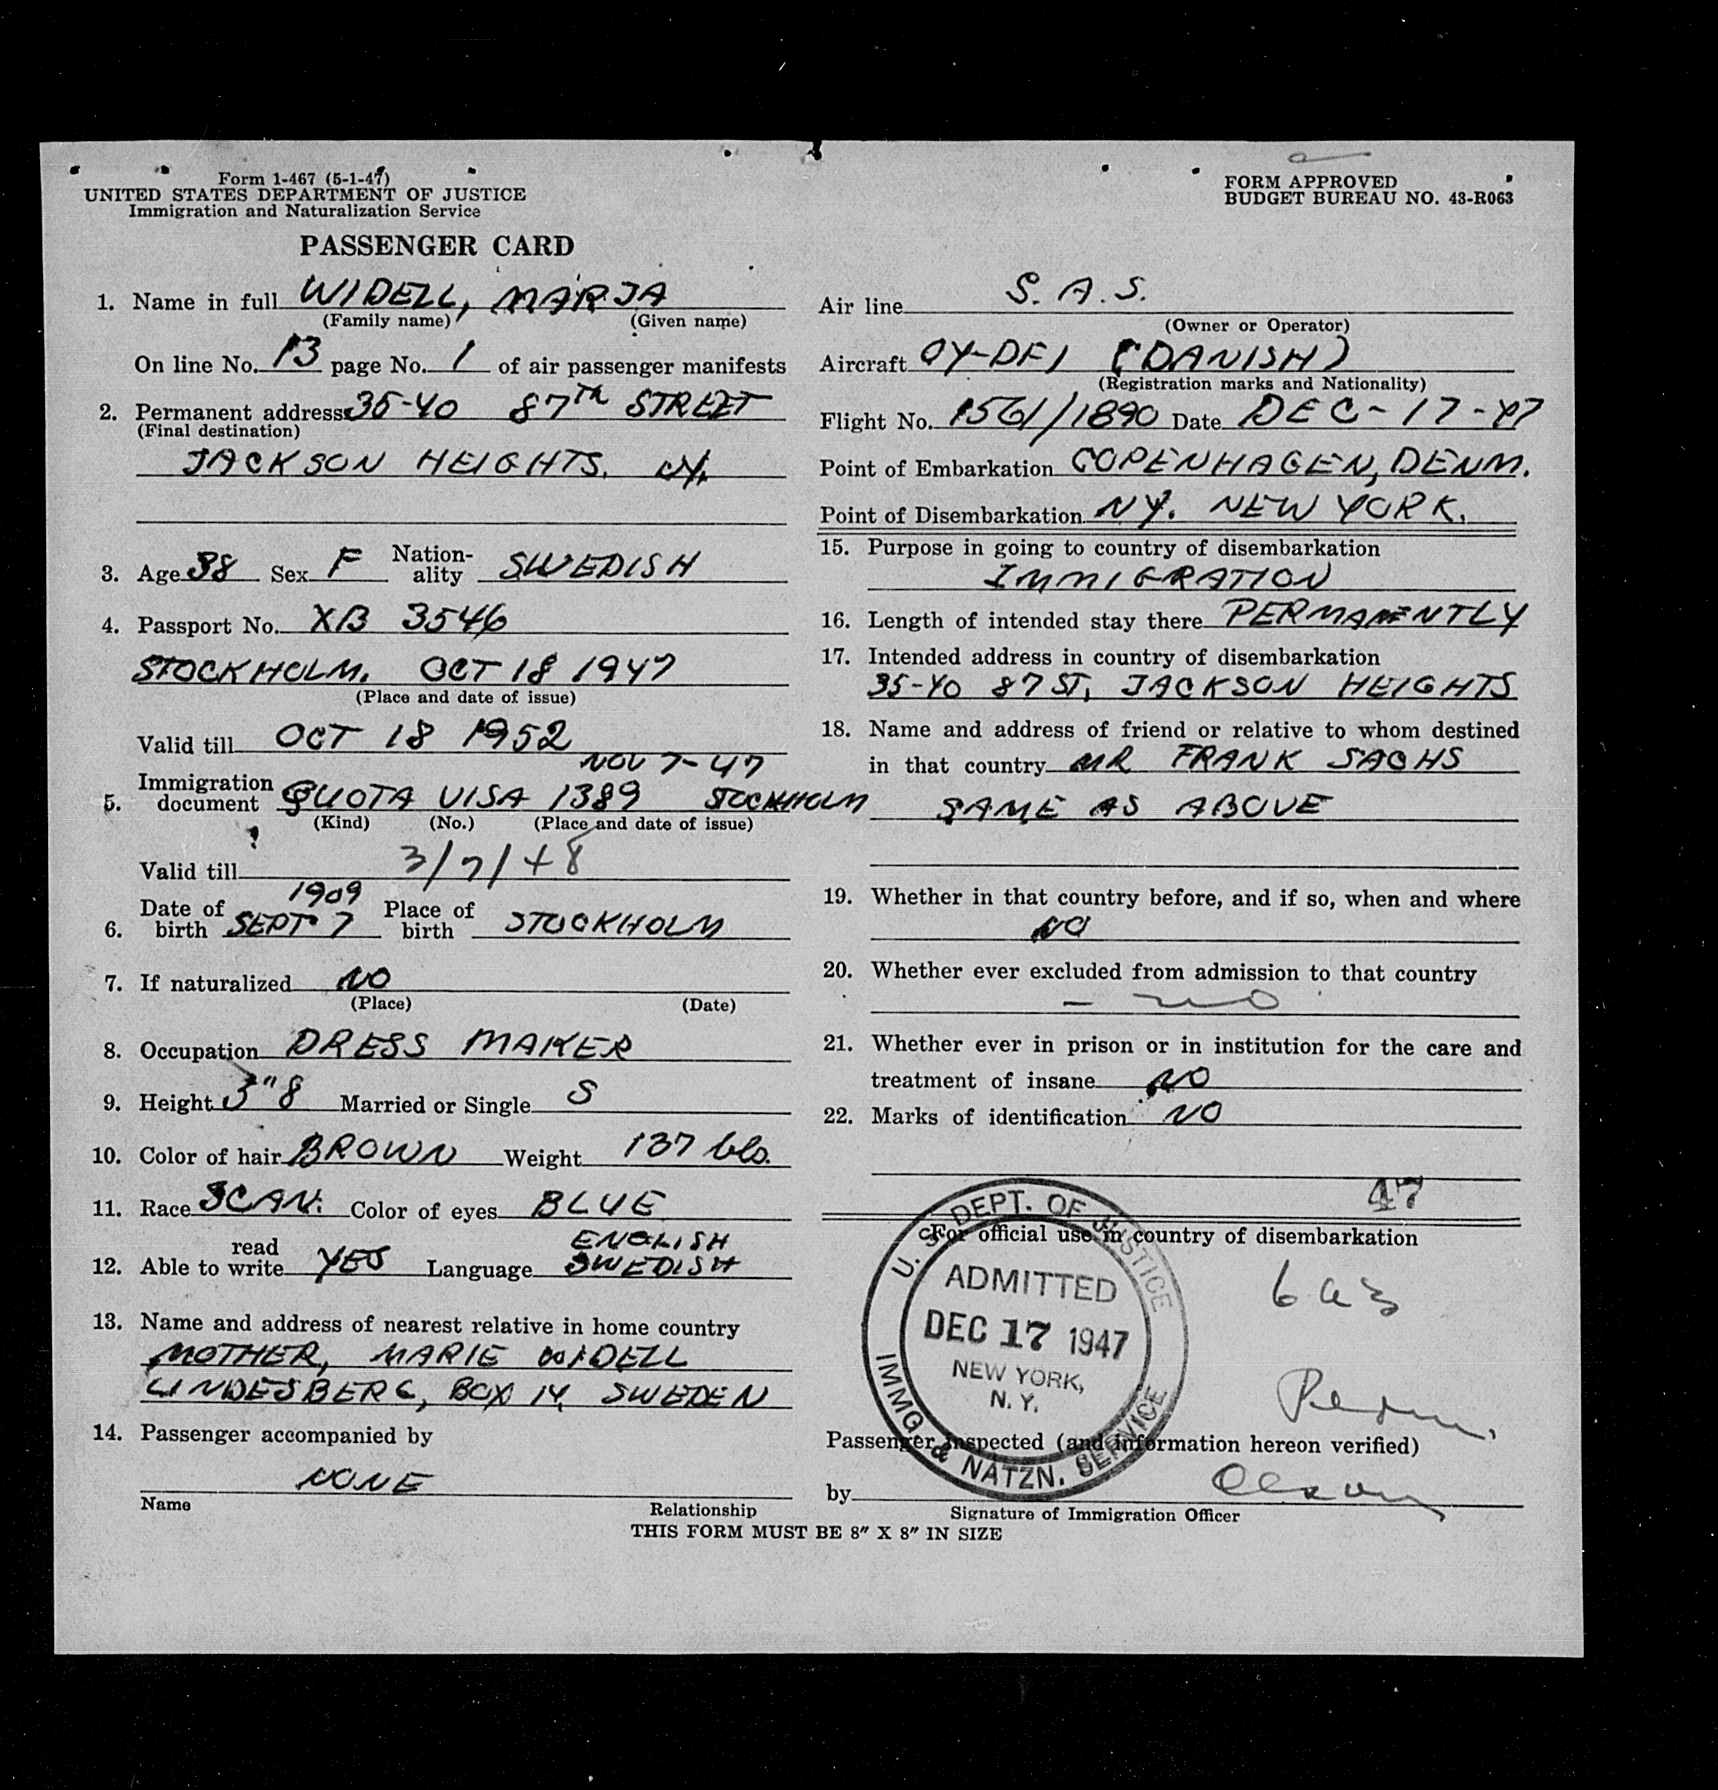 Form 1-467 (5-1-47)
UNITED STATES DEPARTMENT OF JUSTICE
Immigration and Naturalization Service
PASSENGER CARD
FORM APPROVED
BUDGET BUREAU NO. 43-R063
1. Name in full WIDELL, MARJA
(Family name) (Given name)
On line No. 13 page No. 1 of air passenger manifests
2. Permanent address 35-40 87TH STREET
(Final destination)
JACKSON HEIGHTS. NY.
3. Age 38 Sex F Nation-ality SWEDISH
4. Passport No. XB 3546
STOCKHOLM. OCT 18 1947
(Place and date of issue)
Valid till OCT 18 1952
NOV 7-47
5. Immigration document QUOTA VISA 1389 STOCKHOLM
(Kind) (No.) (Place and date of issue)
Valid till 3/7/48
1909
6. Date of birth SEPT 7 Place of birth STOCKHOLM
7. If naturalized NO
(Place) (Date)
8. Occupation DRESS MAKER
9. Height 5"8 Married or Single S
10. Color of hair BROWN Weight 137 lbs.
11. Race SCAN. Color of eyes BLUE
ENGLISH
12. Able to read write YES Language SWEDISH
13. Name and address of nearest relative in home country
MOTHER, MARIE WIDELL
LINDESBERG, BOX 14, SWEDEN
14. Passenger accompanied by
NONE
Name Relationship
Air line S. A. S.
(Owner or Operator)
Aircraft OY-DFI (DANISH)
(Registration marks and Nationality)
Flight No. 1561/1890 Date DEC-17-47
Point of Embarkation COPENHAGEN, DENM.
Point of Disembarkation NY. NEW YORK.
15. Purpose in going to country of disembarkation
IMMIGRATION
16. Length of intended stay there PERMANENTLY
17. Intended address in country of disembarkation
35-40 87 ST, JACKSON HEIGHTS
18. Name and address of friend or relative to whom destined
in that country MR FRANK SACHS
SAME AS ABOVE
19. Whether in that country before, and if so, when and where
NO
20. Whether ever excluded from admission to that country
- no
21. Whether ever in prison or in institution for the care and
treatment of insane NO
22. Marks of identification NO
47
For official use in country of disembarkation
U. S. DEPT. OF JUSTICE
ADMITTED
DEC 17 1947
NEW YORK,
N. Y.
IMMG. & NATZN. SERVICE
Passenger inspected (and information hereon verified)
by
Signature of Immigration Officer
THIS FORM MUST BE 8" X 8" IN SIZE